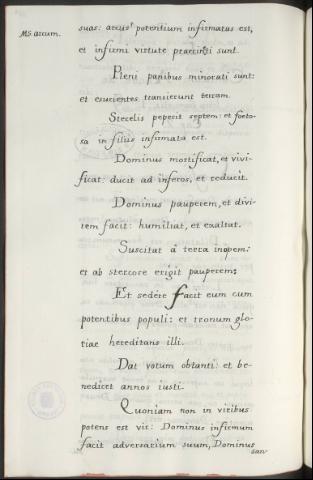 suas: arcus potentium infirmatus est,
MS. arcum.
et infirmi virtute praecincti sunt.
Pleni panibus minorati sunt:
et esurientes transierunt terram.
Sterelis peperit septem: et foeto-
sa in filiis infirmata est.
Dominus mortificat, et vivi-
ficat: ducit ad inferos, et reducit.
Dominus pauperem, et divi-
tem facit: humiliat, et exaltat.
Suscitat à terra inopem:
et ab stercore erigit pauperem:
Et sedere facit eum cum
potentibus populi: et tronum glo-
riae hereditans illi.
Dat votum obtanti: et be-
nedicet annos iusti.
Quoniam non in viribus
potens est vir: Dominus infirmum
facit adversarium suum, Dominus
san